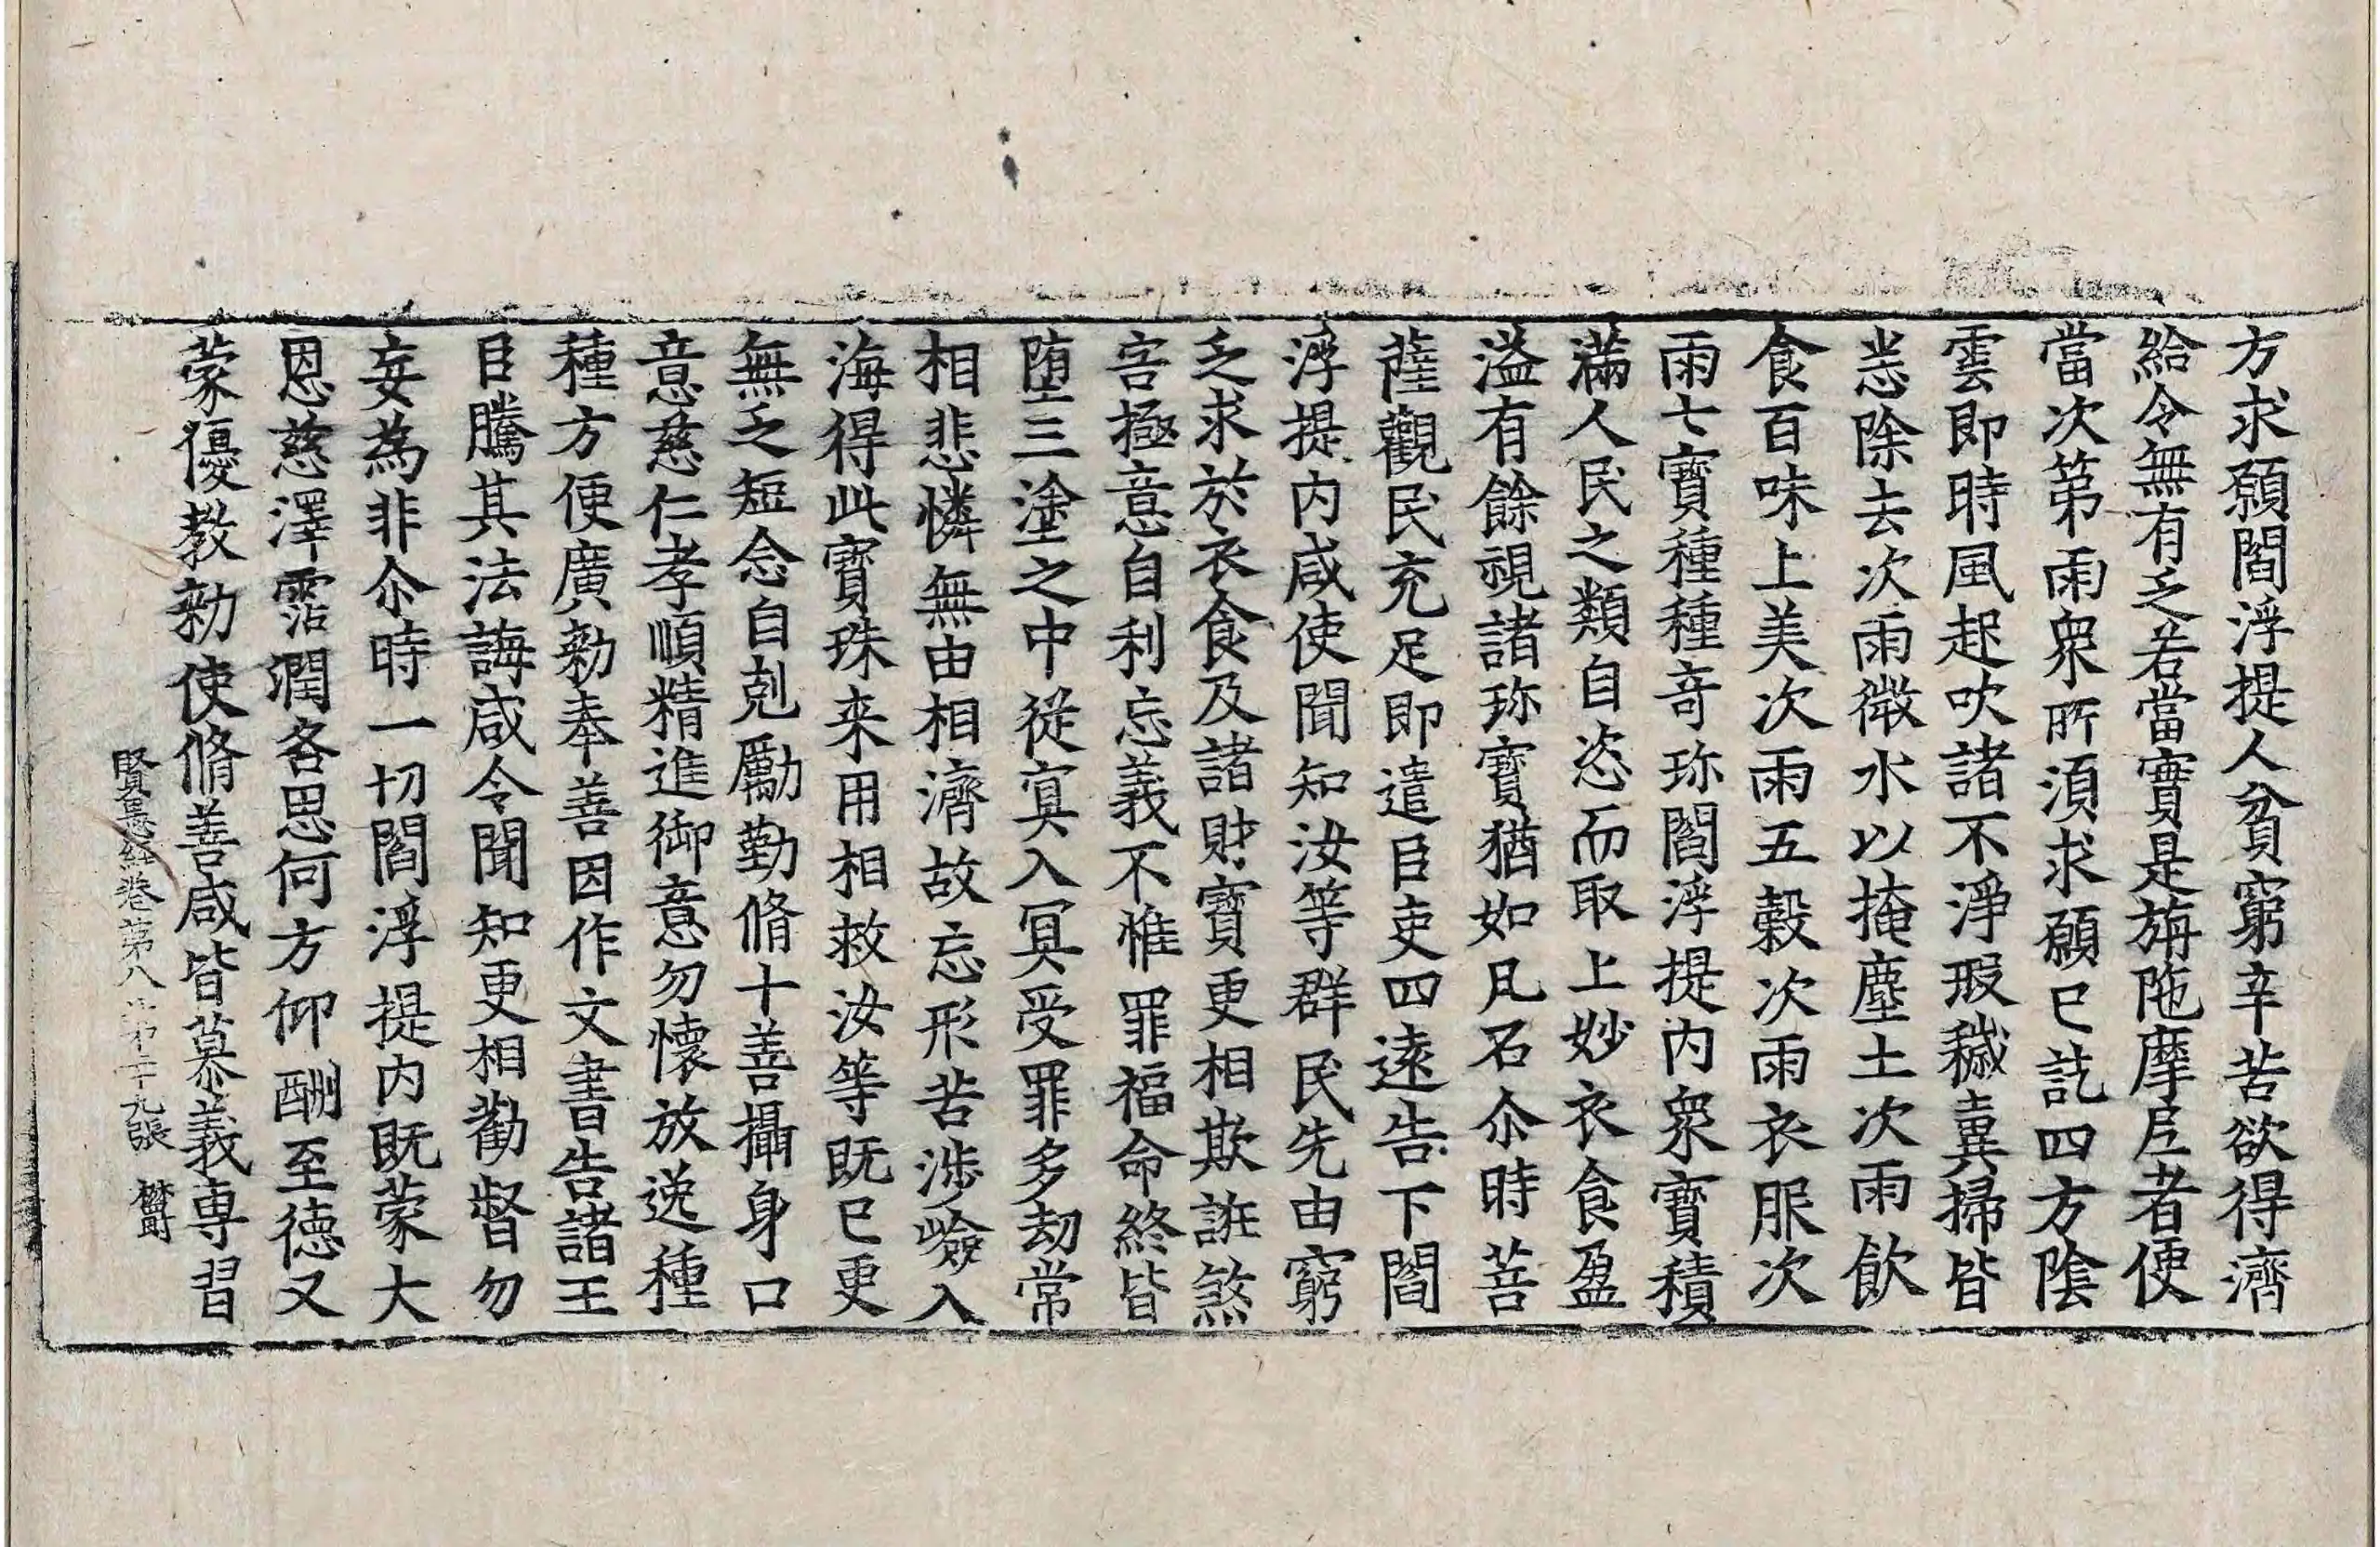 方求願閻浮提人貧窮辛苦欲得濟
給令無有乏若當實是旃陁摩尼者便
當次第雨衆所須求願已訖四方陰
雲即時風起吹諸不淨瑕穢糞掃皆
悉除去次雨微水以掩塵土次雨飲
食百味上美次雨五穀次雨衣服次
雨七寶種種竒珎閻浮提内衆寶積
滿人民之類自恣而取上妙衣食盈
溢有餘視諸珎寶猶如凡石尒時菩
薩觀民充足即遣臣吏四逺告下閻
浮提内咸使聞知汝等群民先由窮
乏求於衣食及諸財寶更相欺誑煞
害極意自利忘義不惟罪福命終皆
堕三塗之中從冥入冥受罪多劫常
相悲憐無由相濟故忘形苦涉嶮入
海得此寶珠来用相救汝等既已更
無乏短念自剋勵勤脩十善攝身口
意慈仁孝順精進御意勿懷放逸種
種方便廣勑奉善因作文書告諸王
臣騰其法誨咸令聞知更相勸督勿
妄為非尒時一切閻浮提内既蒙大
恩慈澤霑潤各思何方仰酬至德又
蒙優教勑使脩善咸皆慕義專習
賢愚經卷第八 第二十九張